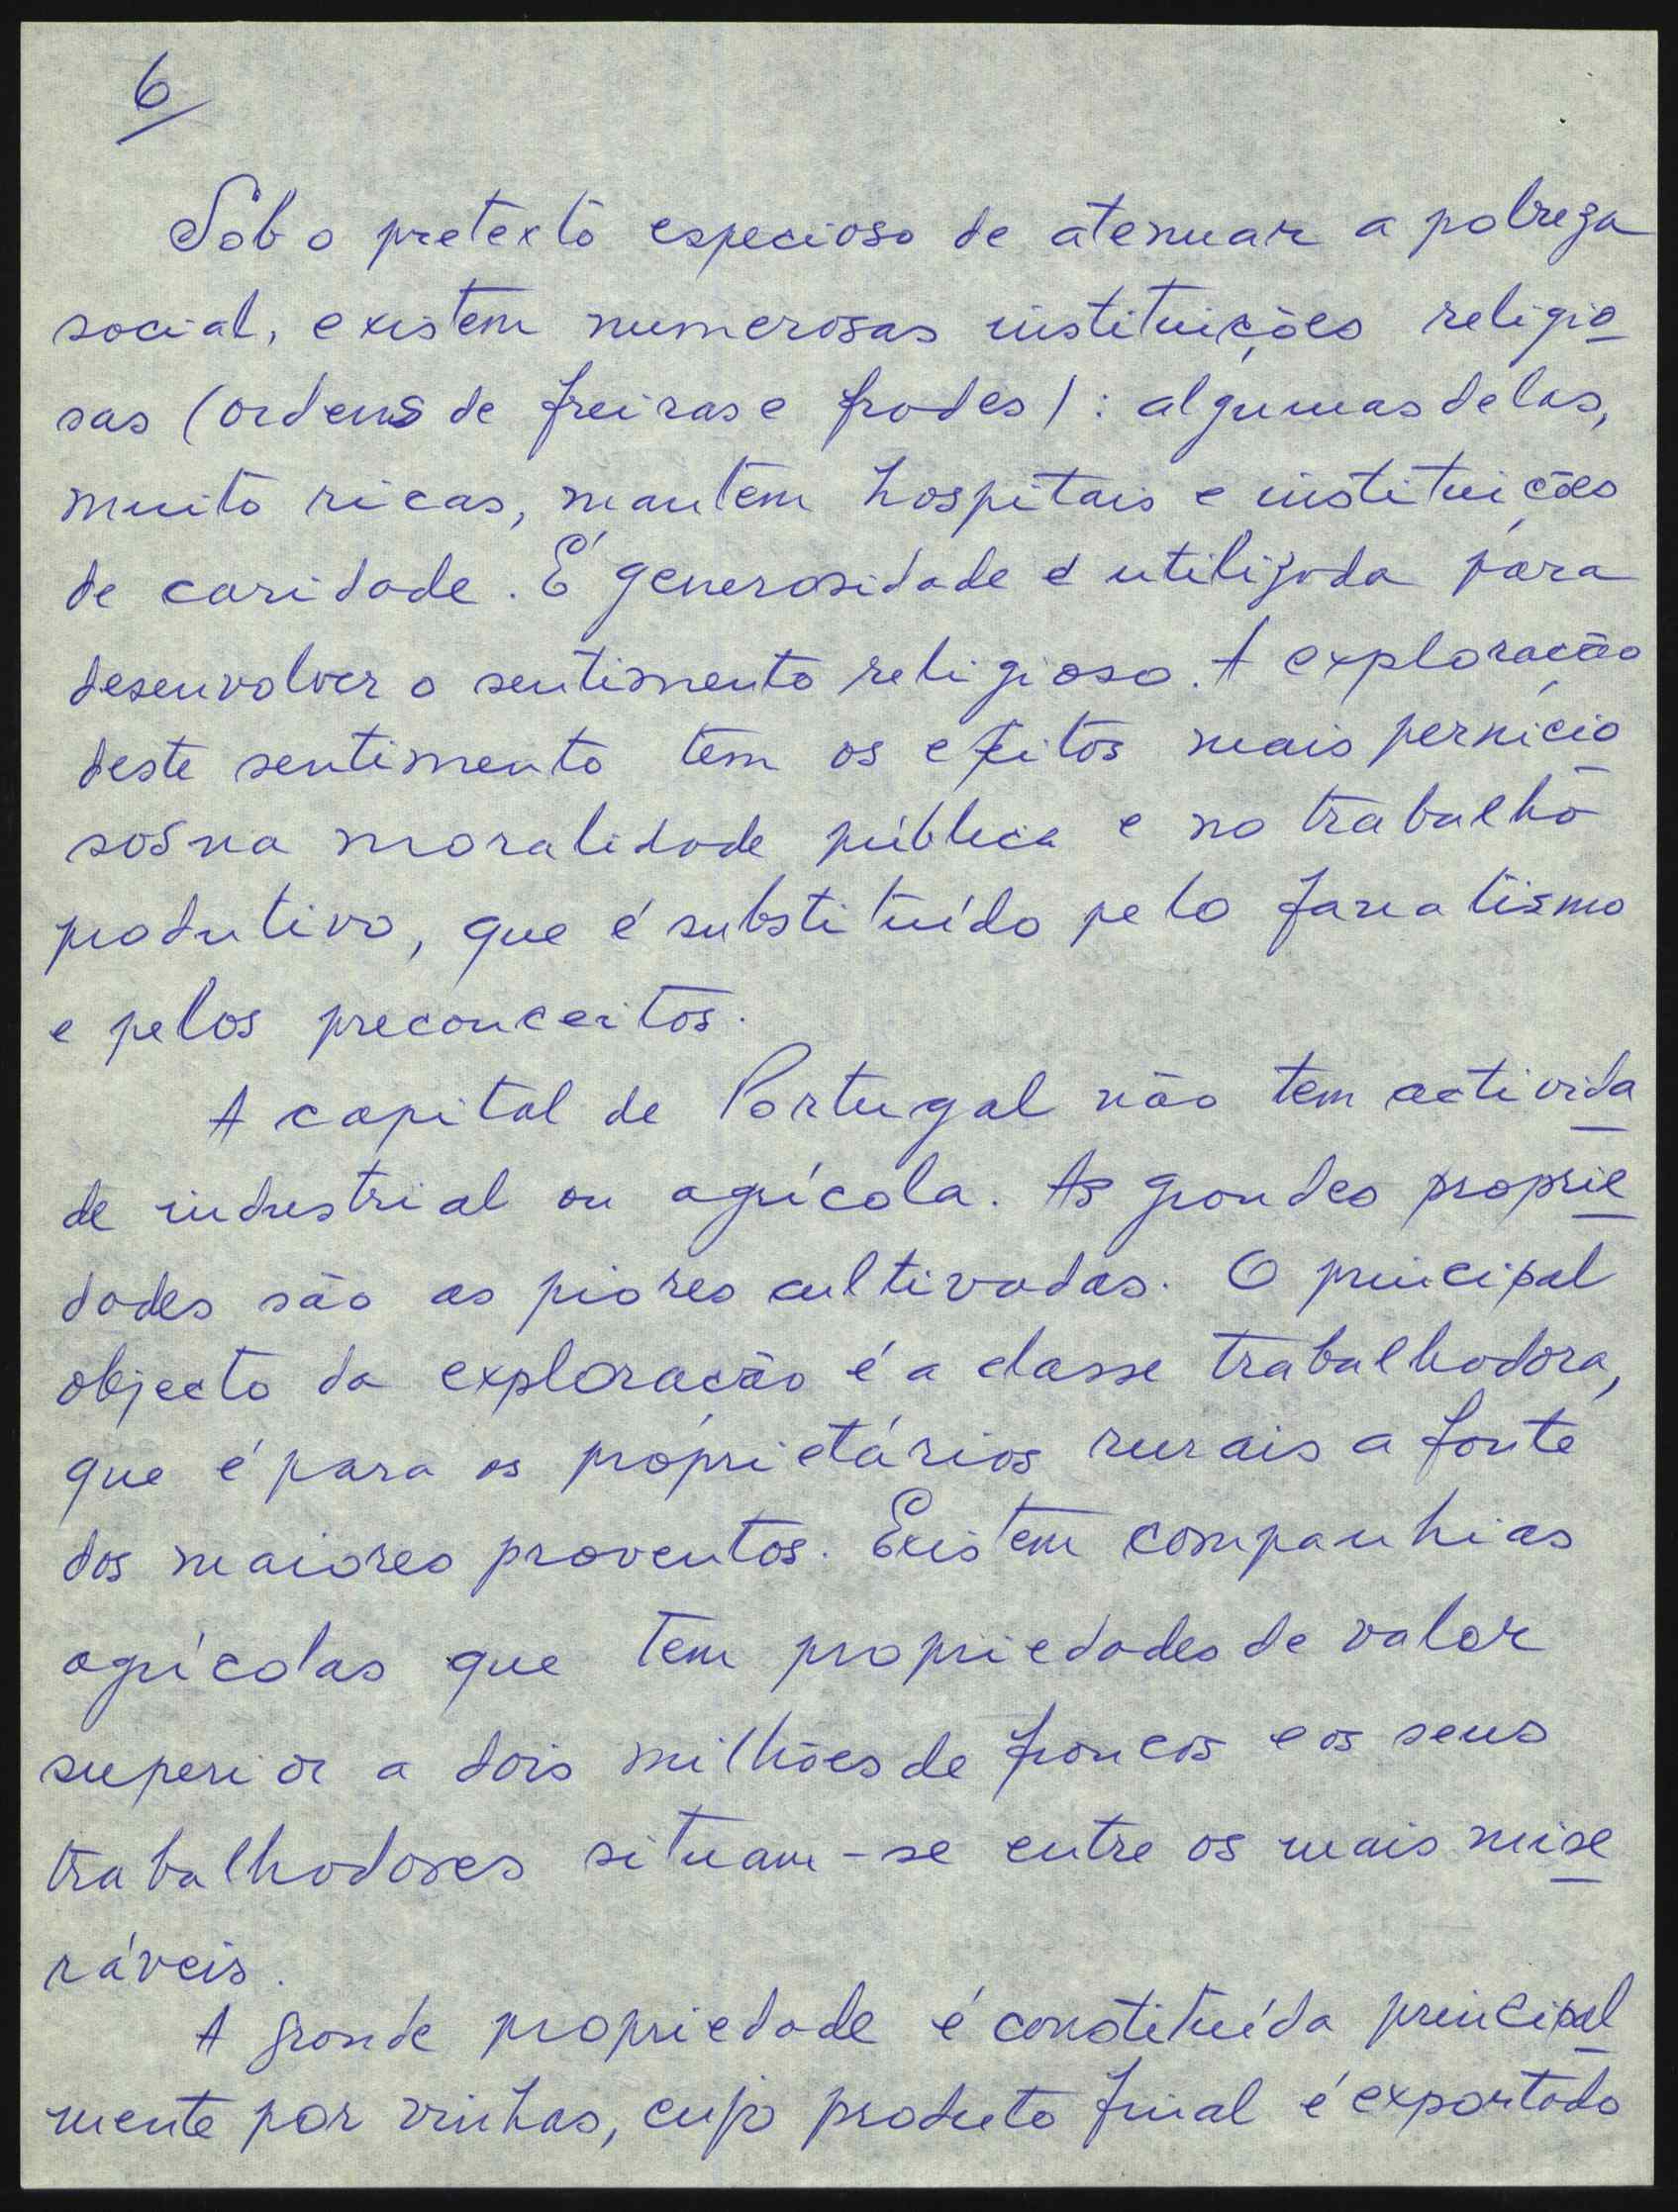 6
Sob o pretexto especioso de atenuar a pobreza
social, existem numerosas instituições religio
sas (ordens de freiras e frades): algumas delas,
muito ricas, mantem hospitais e instituições
de caridade. É generosidade e utilizada para
desenvolver o sentimento religioso. A exploração
deste sentimento tem os efeitos mais pernicio
sos na moralidade pública e no trabalho
produtivo, que é substituído pelo fanatismo
e pelos preconceitos.
A capital de Portugal não tem activida
de industrial ou agrícola. As grandes proprie
dades são as piores cultivadas. O principal
objecto da exploração é a classe trabalhadora,
que é para os proprietários rurais a fonte
dos maiores proventos. Existem companhias
agrícolas que tem propriedades de valor
superior a dois milhões de francos e os seus
trabalhadores situam-se entre os mais mise
ráveis.
A grande propriedade é constituída principal
mente por vinhas, cujo produto final é exportado